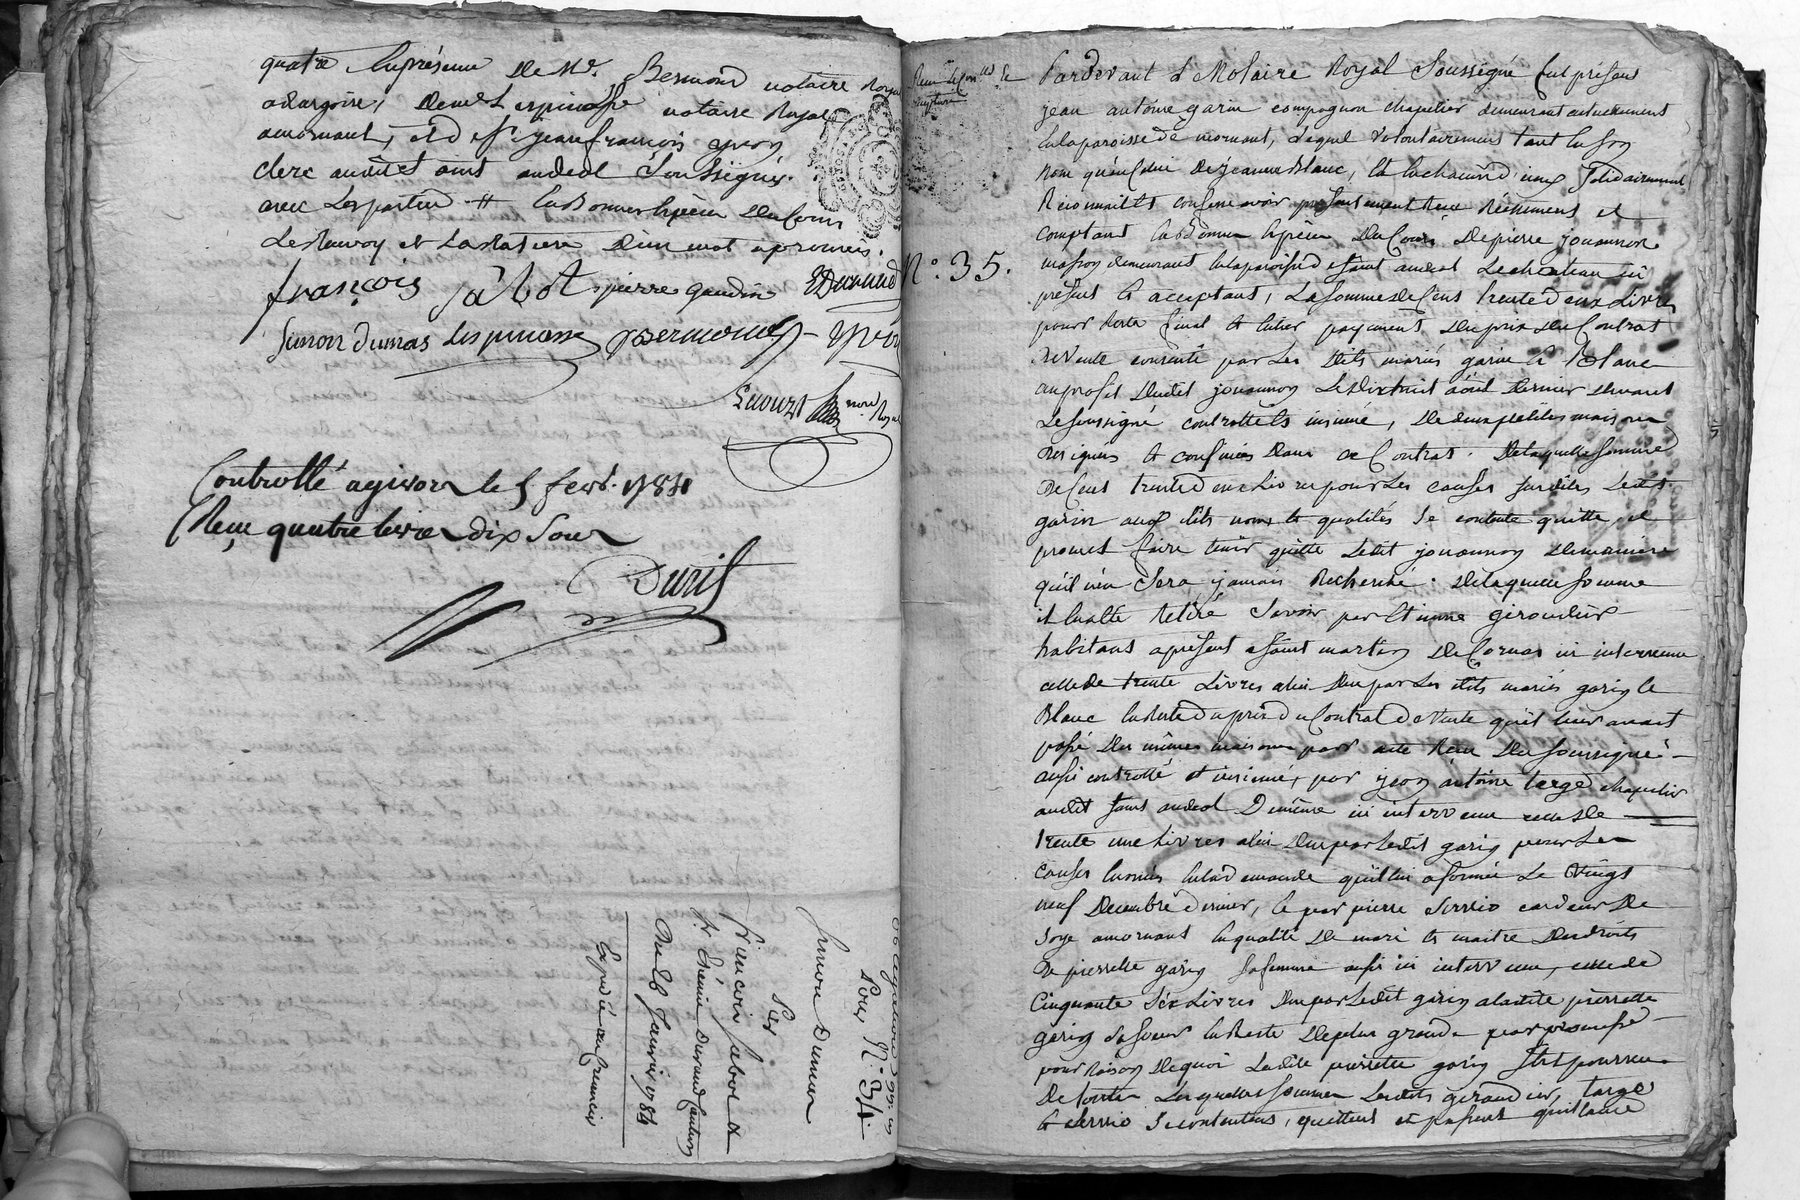 quatre En présence De Me. Bermond notaire Royal
De Me Lespinasse notaire Royal
amornant, et d Sr. jean françois yvon
clerc audit saint andeol Soussignés.
avec les parties # En Bonnes Espèces Du Cours
Le Renvoy et La Rature D'un mot aprouvés.
françois fâbot pierre gaudin EDurand
Simon dumas Lespinasse Bermond yvon
not. Royal
Controllé agivors le 5 fevr. 1784
Reçu quatre livres dix Sous
Duril
Obligation de 99# en
Pour N°. 34.
Simon Dumas
Par
Francois fabot &
Et Etienne Durand Caution
Du 26 Janvier 1784
Expédiée au Creancier
N°. 35.
Pardevant Le Notaire Royal Soussigné fut présent
jean antoine garin compagnon chapelier demeurant actuellement
En la paroisse de mornant, Lequel volontairement tant En Son
Nom qu'En Celui De jeanne Blanc, Et En chacun d'iceux Solidairement
Reconnait Et confesse avoir présentement Reçu Réellement et
comptant En Bonnes Espèces Du Cours De pierre jouannon
masson demeurant En la paroisse de Saint andeol Le chateau ici
présent Et acceptant, La Somme de Cent trente deux Livres
pour Reste final Et Entier payement Du prix Du Contrat
De Vente consenti par Les Dits mariés garin Et Blanc
au profit Dudit jouannon Le Dixhuit août Dernier Devant
Le Soussigné controllé Et insinué, De deux petites maisons
Désignées Et confinées Dans ce Contrat. De laquelle Somme
De Cent trente deux Livres pour Les causes Susdites Ledit
garin aux dits noms Et qualités Se contente quitte et
promet faire tenir quitte Ledit jouannon De manière
qu'il n'en Sera jamais Recherché. De laquelle Somme
il En a Eté Retiré Savoir par Etienne giroudier
habitant aprésent a Saint martin De Cornas ici intervenu
celle de trente Livres a lui Due par Les dits mariés garin Et
Blanc En Reste Du prix Du Contrat De Vente qu'il Leur avait
passé Des mêmes maisons par acte Reçu Du Soussigné
aussi controllé et insinué, par jean antoine targe chapelier
audit Saint andeol De même ici intervenu celle De
trente une Livres a lui Due par Ledit garin pour Les
Causes Enoncées En la Demande qu'il lui a formée Le Vingt
neuf Décembre dernier, Et par pierre Servio cardeur De
Soye amornant En qualité De mari Et maitre Des droits
De pierrette garin Sa femme aussi ici intervenu, celle de
Cinquante Six Livres Due par Ledit garin a ladite pierrette
garin Sa Soeur En Reste De plus grande par promesse
pour Raison De quoi Ladite pierrette garin S'etoit pourvue
De toutes Lesquelles Sommes Lesdits giroudier, targe
Et Servio Se contentent, quittent et passent quittance